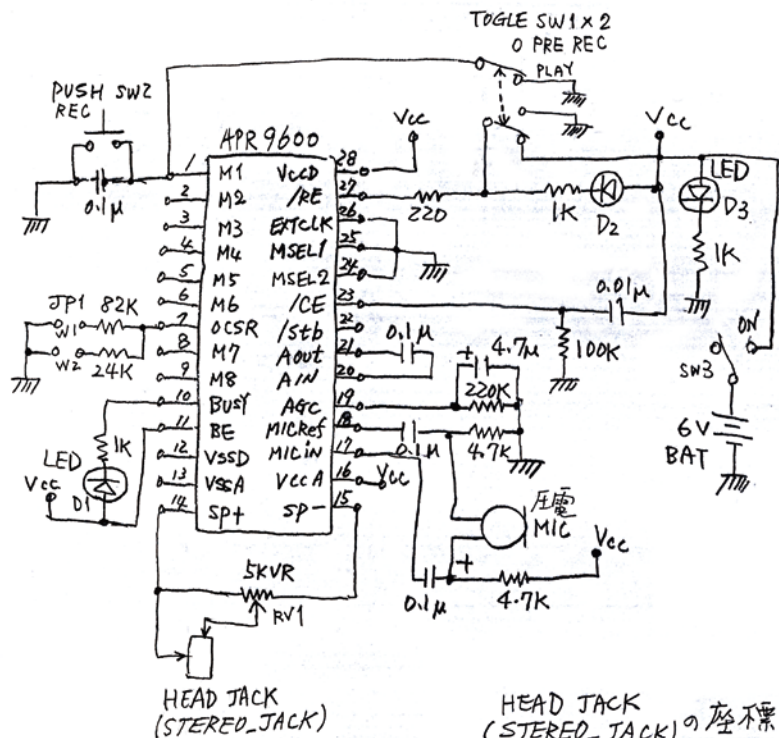 TOGLE SW1×2
O PRE REC
PLAY
PUSH SW2
REC
0.1μ
APR9600
1 M1
2 M2
3 M3
4 M4
5 M5
6 M6
7 OCSR
8 M7
9 M8
10 BUSY
11 BE
12 VSSD
13 VSSA
14 SP+
VCCD 28
/RE 27
EXTCLK 26
MSEL1 25
MSEL2 24
/CE 23
/Stb 22
Aout 21
AIN 20
AGC 19
MICRef 18
MICIN 17
VCCA 16
SP- 15
Vcc
Vcc
220
1K
D2
LED
D3
1K
0.01μ
100K
ON
SW3
6V
BAT
JP1 82K
W1
W2
24K
0.1μ
+ 4.7μ
220K
0.1μ
4.7K
Vcc
1K
LED
D1
Vcc
圧電
MIC
+
Vcc
0.1μ
4.7K
5KVR
RV1
HEAD JACK
(STEREO_JACK)
HEAD JACK
(STEREO_JACK)の座標